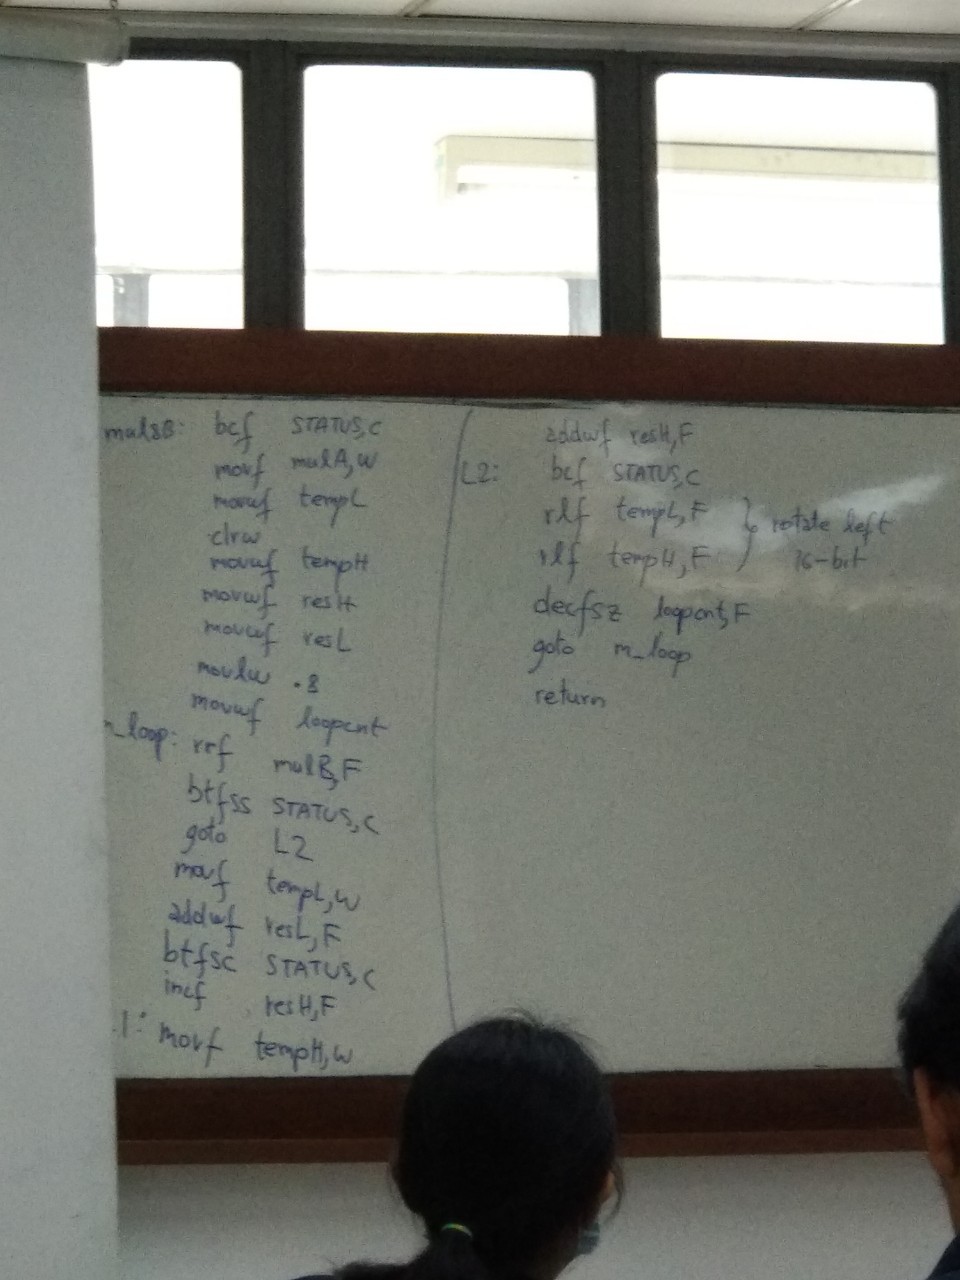 mul8B: bcf STATUS,C
movf mulA,W
movwf tempL
clrw
movwf tempH
movwf resH
movwf resL
movlw .8
movwf loopcnt
_loop: rrf mulB,F
btfss STATUS,C
goto L2
movf tempL,W
addwf resL,F
btfsc STATUS,C
incf resH,F
1: movf tempH,W
addwf resH,F
L2: bcf STATUS,C
rlf tempL,F
rlf tempH,F
} rotate left
16-bit
decfsz loopcnt,F
goto m_loop
return